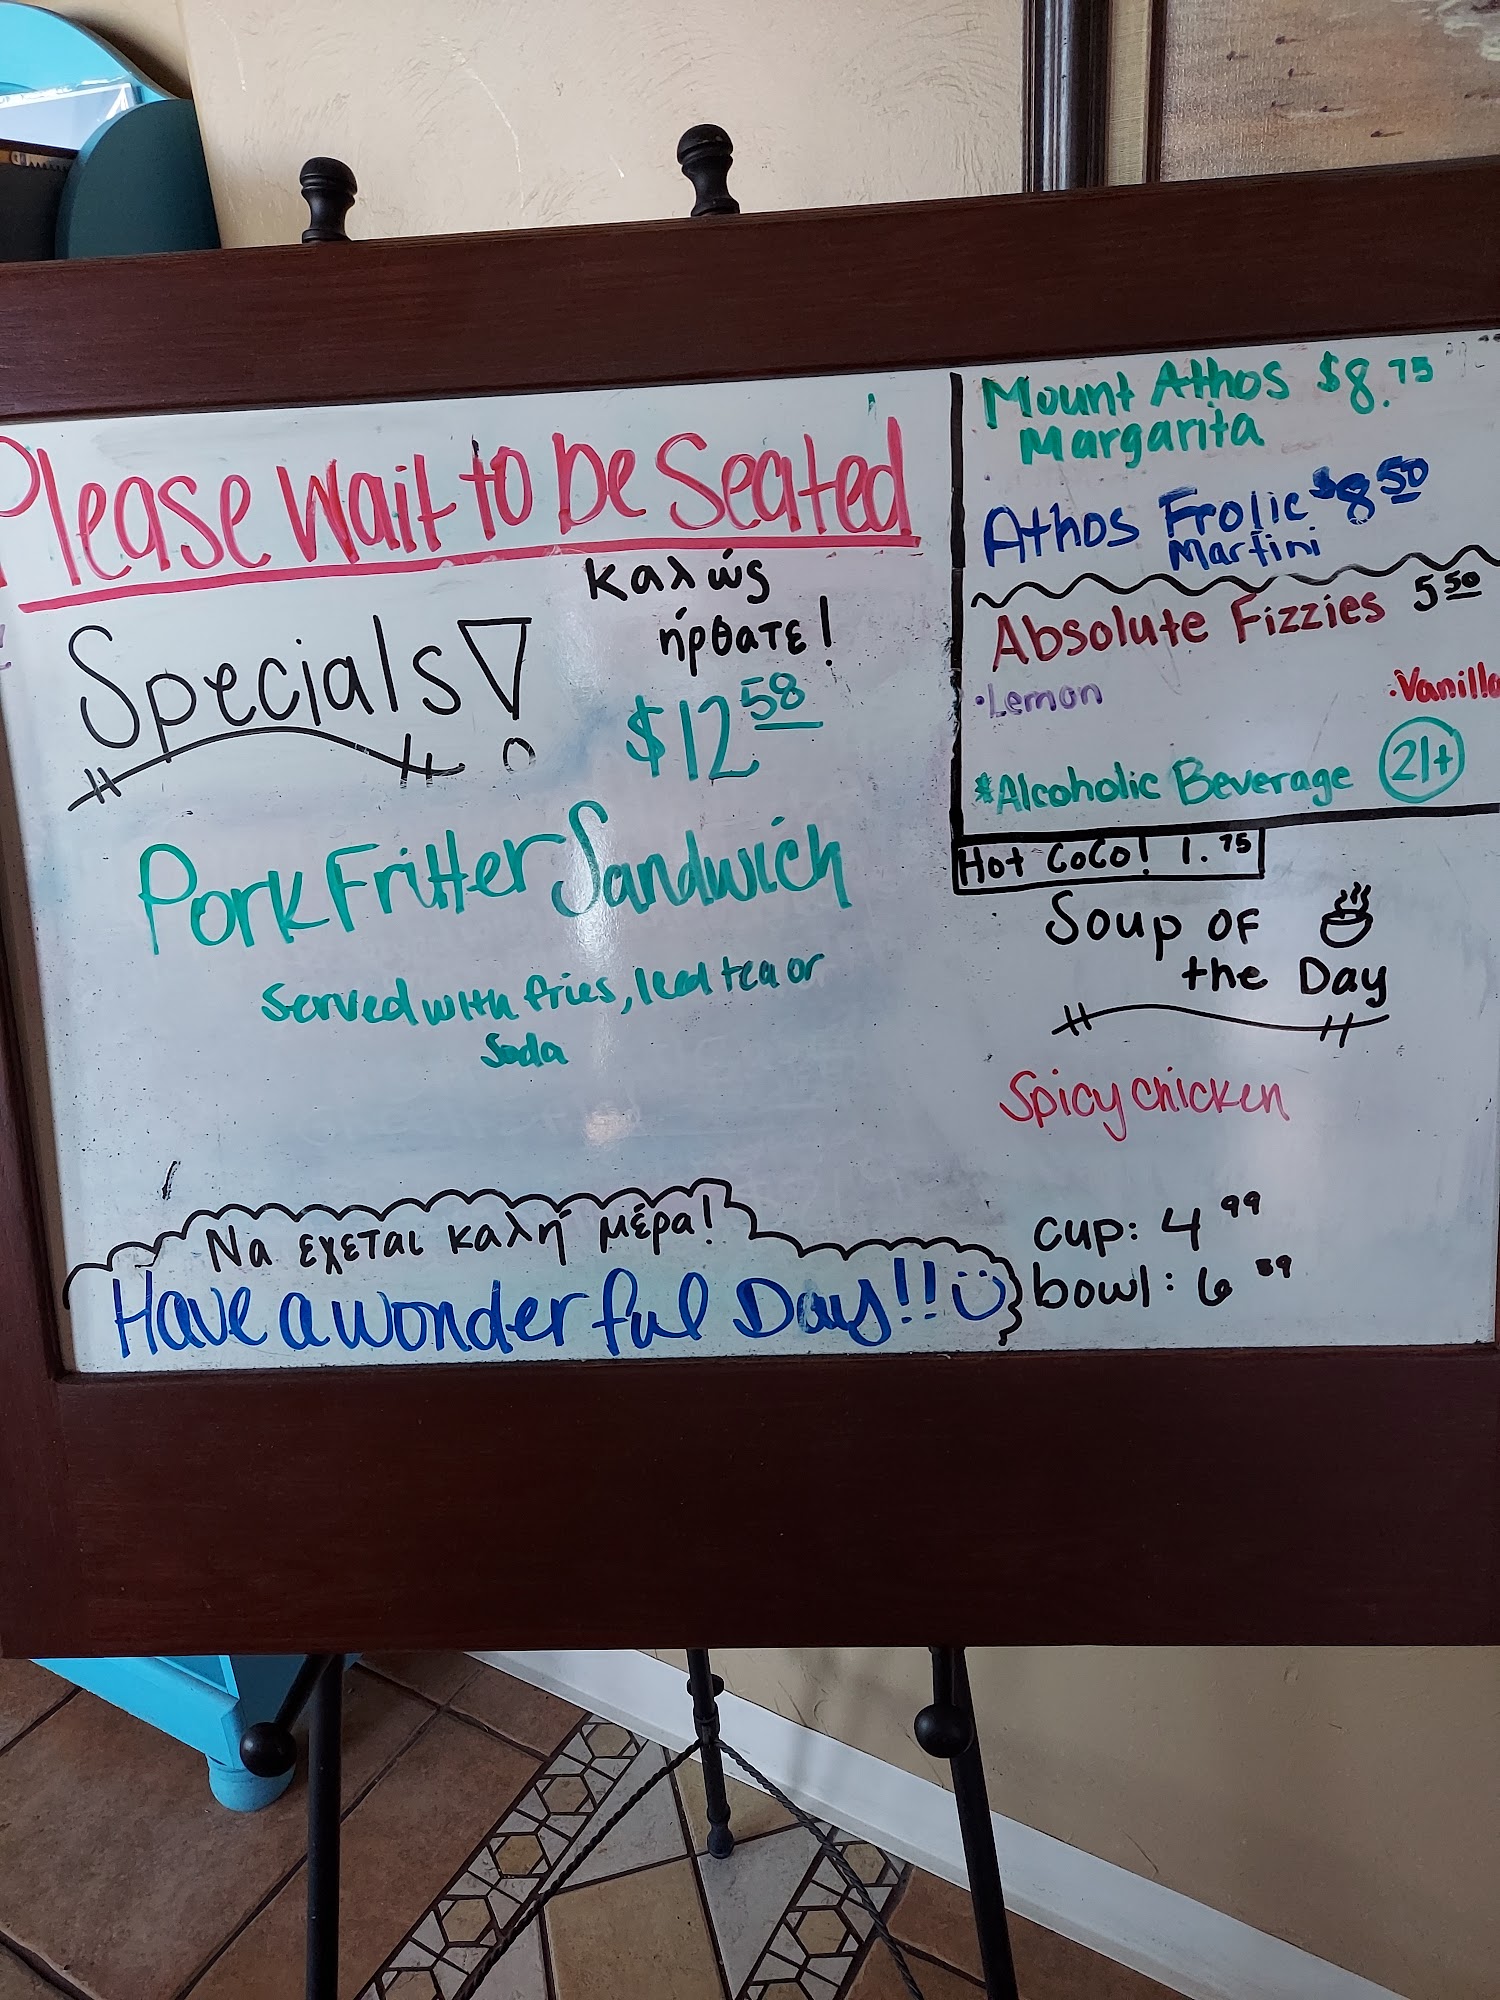 Please Wait to be Seated
Specials!
καλώς
ήρθατε!
$12.58
Pork Fritter Sandwich
Served with fries, Iced tea or
Soda
Να εχεται καλή μέρα!
Have a wonderful Day!!
Mount Athos $8.75
Margarita
Athos Frolic $8.50
Martini
Absolute Fizzies 5.50
·Lemon ·Vanilla
*Alcoholic Beverage 21+
Hot CoCo! 1.75
Soup of
the Day
Spicy chicken
cup: 4 99
bowl: 6